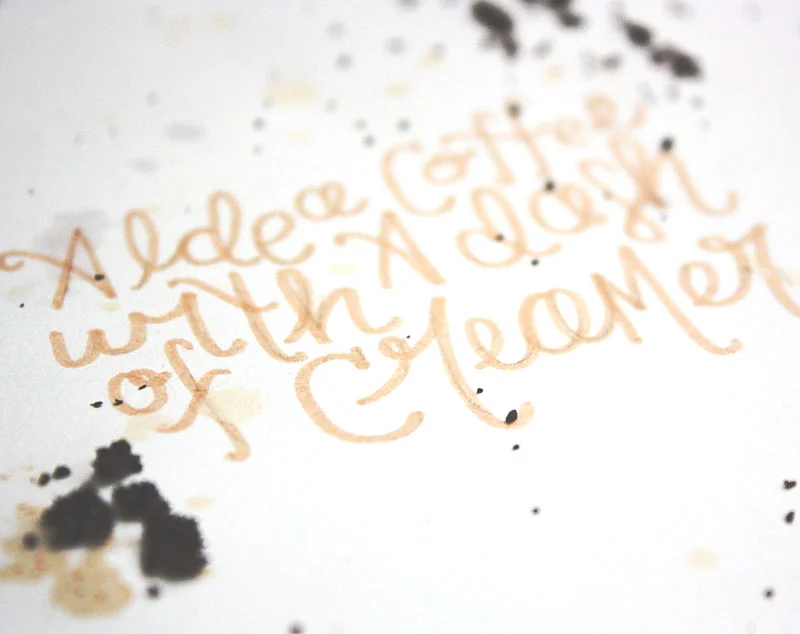 Aldea Coffee
with A dash
of CreaMer